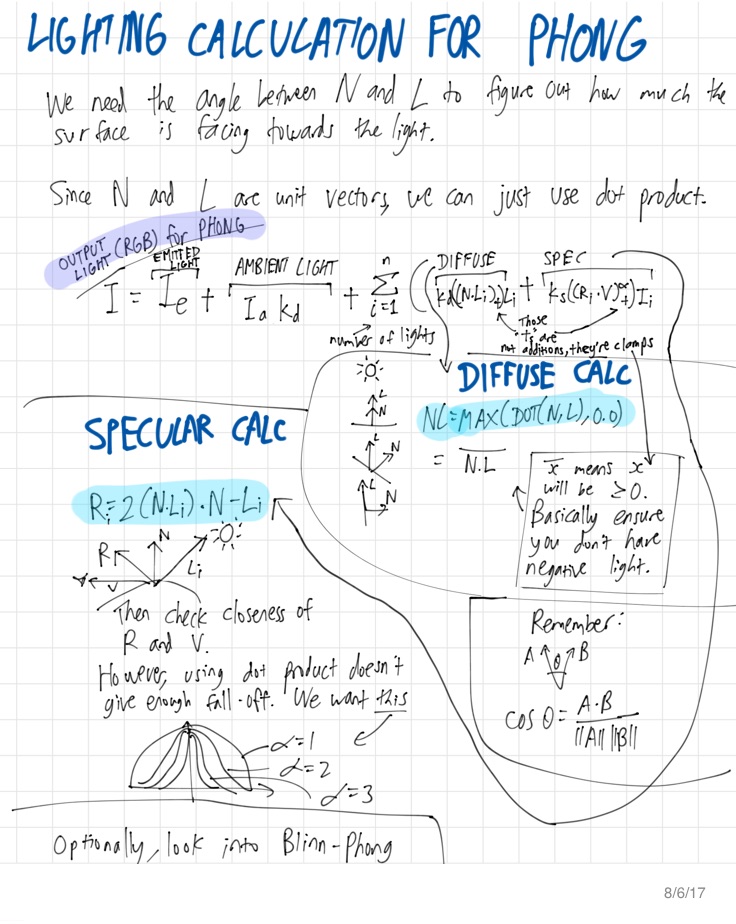 LIGHTING CALCULATION FOR PHONG
We need the angle between N and L to figure out how much the
surface is facing towards the light.
Since N and L are unit vectors, we can just use dot product.
OUTPUT LIGHT (RGB) for PHONG
EMITTED LIGHT
AMBIENT LIGHT
DIFFUSE
SPEC
I = Ie + Ia kd + n Σ i=1 ((kd(N·Li)+)Li + ks((Ri·V)+)^α)Ii
number of lights
Those "+"s are
not additions, they're clamps
DIFFUSE CALC
NL=MAX(DOT(N,L),0.0)
= N.L
x means x
will be ≥0.
Basically ensure
you don't have
negative light.
L
N
L
N
L
N
SPECULAR CALC
Ri=2(N·Li)·N-Li
R
N
Li
V
Then check closeness of
R and V.
However, using dot product doesn't
give enough fall-off. We want this
α=1
α=2
α=3
Remember:
A θ B
cos θ = A·B
||A|| ||B||
Optionally, look into Blinn-Phong
8/6/17